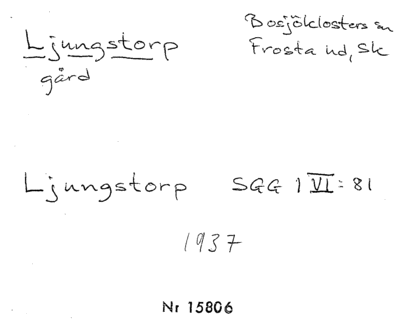 Ljungstorp
gård
Bosjöklosters sn
Frosta hd, Sk
Ljungstorp SGG 1 VI:81
1937
Nr 15806